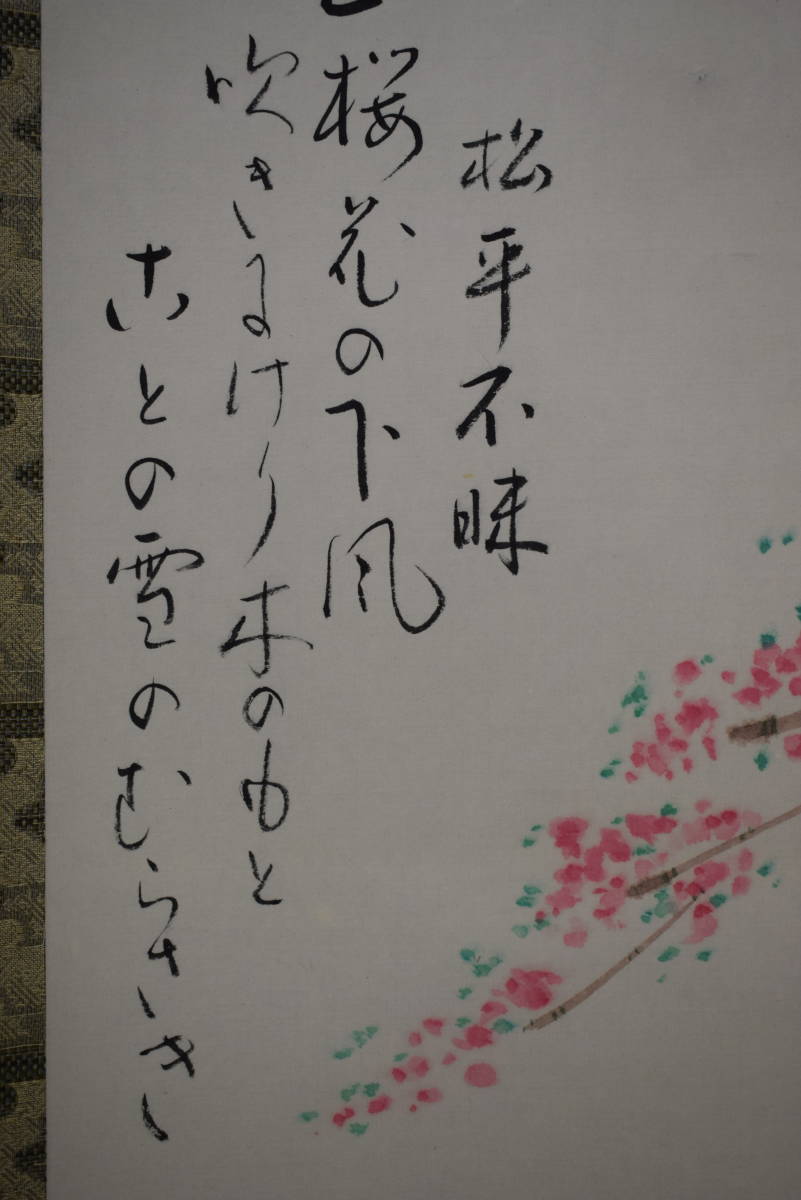 松平不昧
桜花の下風
吹きにけり木のもと
ことの雪のむらきえ